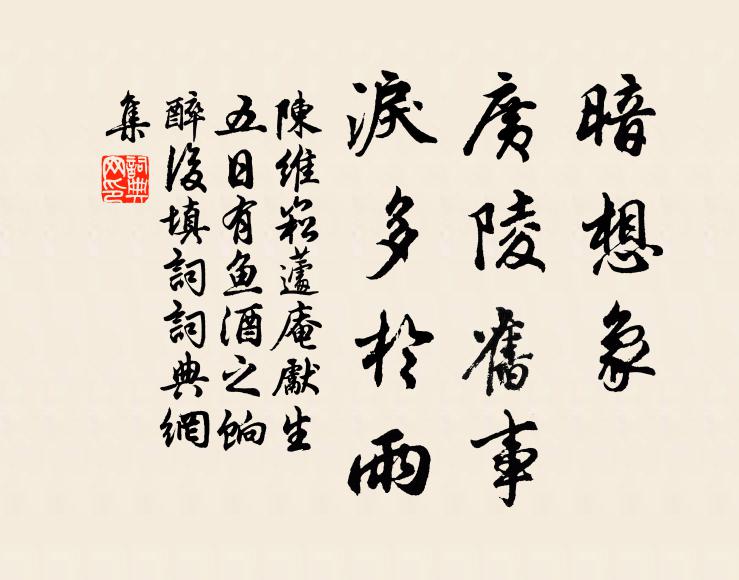 暗想象
廣陵舊事
淚多於雨
陳維崧蘧庵獻生
五日有魚酒之餉
醉後填詞詞典網
集
詞典網印